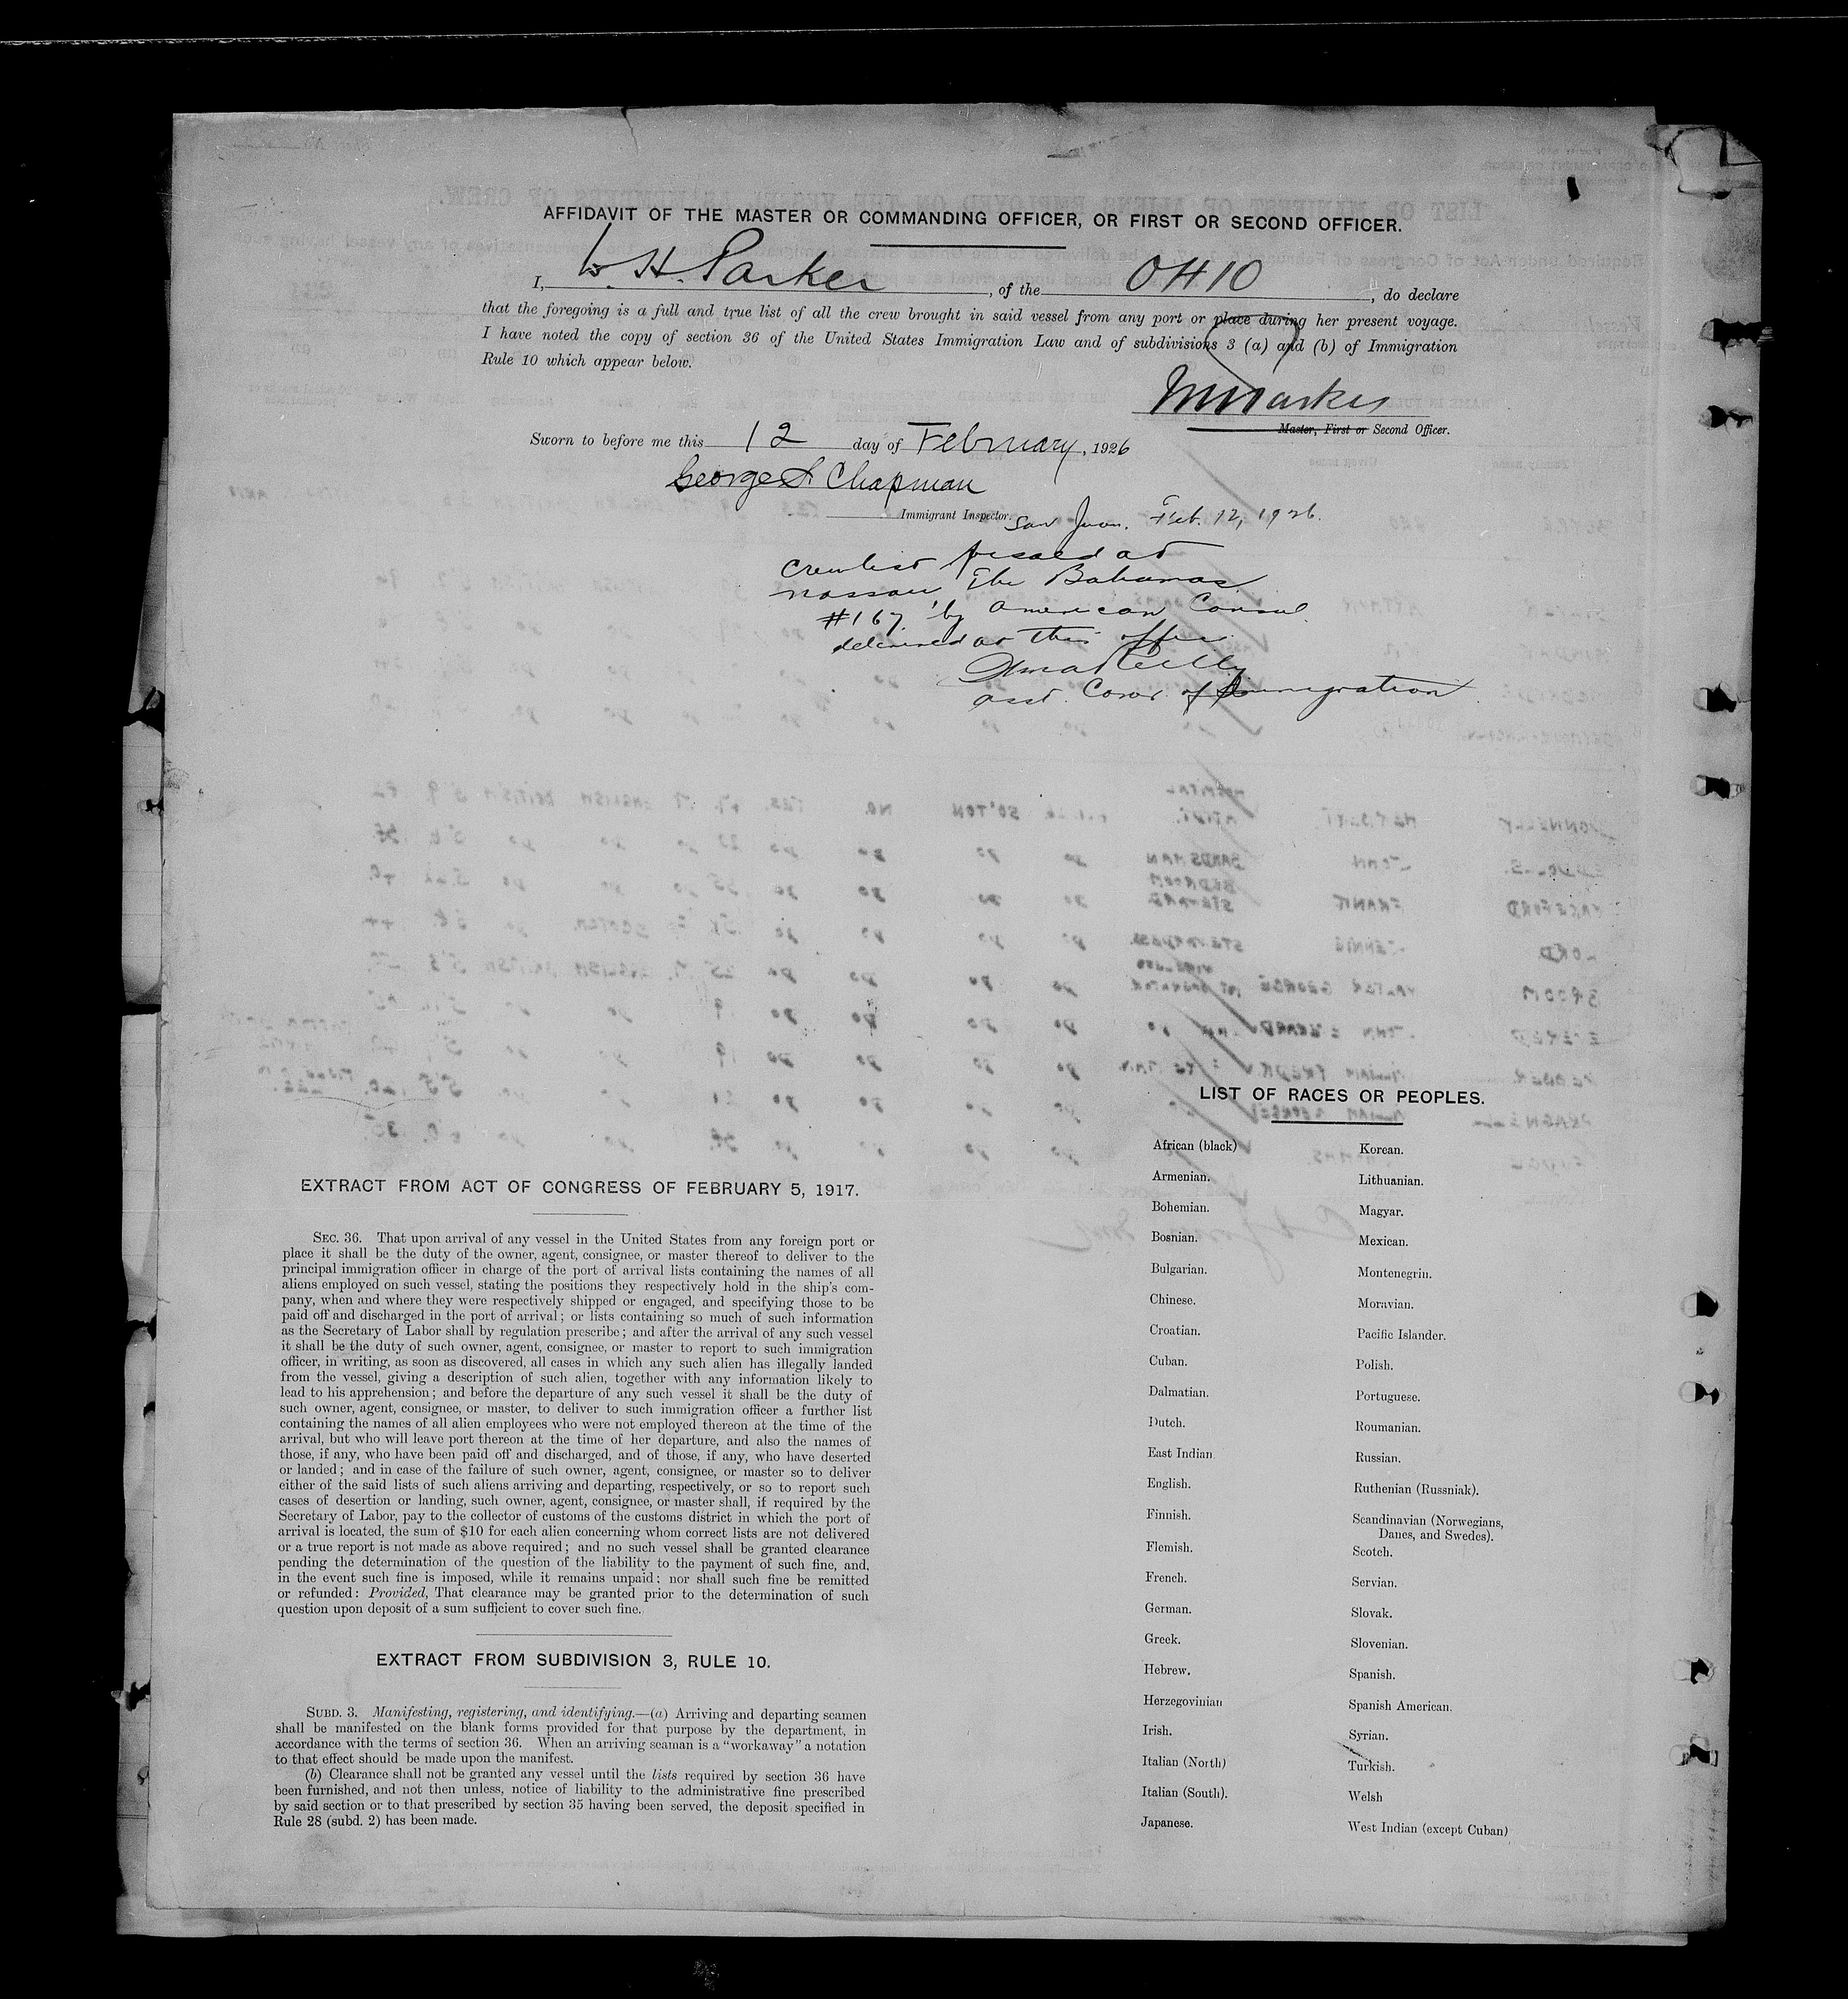 AFFIDAVIT OF THE MASTER OR COMMANDING OFFICER, OR FIRST OR SECOND OFFICER.
I, W. H. Parker, of the OHIO, do declare
that the foregoing is a full and true list of all the crew brought in said vessel from any port or place during her present voyage.
I have noted the copy of section 36 of the United States Immigration Law and of subdivisions 3 (a) and (b) of Immigration
Rule 10 which appear below.
WHParker
Master, First or Second Officer.
Sworn to before me this 12 day of February, 1926
George S. Chapman
Immigrant Inspector.
San Juan. Feb. 12, 1926.
Crewlist visaed at
Nassau, The Bahamas
#167, by American Consul
delivered at this office
Asst. Comr. of Immigration
LIST OF RACES OR PEOPLES.
African (black)
Armenian.
Bohemian.
Bosnian.
Bulgarian.
Chinese.
Croatian.
Cuban.
Dalmatian.
Dutch.
East Indian
English.
Finnish.
Flemish.
French.
German.
Greek.
Hebrew.
Herzegovinian
Irish.
Italian (North)
Italian (South).
Japanese.
Korean.
Lithuanian.
Magyar.
Mexican.
Montenegrin.
Moravian.
Pacific Islander.
Polish.
Portuguese.
Roumanian.
Russian.
Ruthenian (Russniak).
Scandinavian (Norwegians,
Danes, and Swedes).
Scotch.
Servian.
Slovak.
Slovenian.
Spanish.
Spanish American.
Syrian.
Turkish.
Welsh
West Indian (except Cuban)
EXTRACT FROM ACT OF CONGRESS OF FEBRUARY 5, 1917.
SEC. 36. That upon arrival of any vessel in the United States from any foreign port or
place it shall be the duty of the owner, agent, consignee, or master thereof to deliver to the
principal immigration officer in charge of the port of arrival lists containing the names of all
aliens employed on such vessel, stating the positions they respectively hold in the ship's com-
pany, when and where they were respectively shipped or engaged, and specifying those to be
paid off and discharged in the port of arrival; or lists containing so much of such information
as the Secretary of Labor shall by regulation prescribe; and after the arrival of any such vessel
it shall be the duty of such owner, agent, consignee, or master to report to such immigration
officer, in writing, as soon as discovered, all cases in which any such alien has illegally landed
from the vessel, giving a description of such alien, together with any information likely to
lead to his apprehension; and before the departure of any such vessel it shall be the duty of
such owner, agent, consignee, or master, to deliver to such immigration officer a further list
containing the names of all alien employees who were not employed thereon at the time of the
arrival, but who will leave port thereon at the time of her departure, and also the names of
those, if any, who have been paid off and discharged, and of those, if any, who have deserted
or landed; and in case of the failure of such owner, agent, consignee, or master so to deliver
either of the said lists of such aliens arriving and departing, respectively, or so to report such
cases of desertion or landing, such owner, agent, consignee, or master shall, if required by the
Secretary of Labor, pay to the collector of customs of the customs district in which the port of
arrival is located, the sum of $10 for each alien concerning whom correct lists are not delivered
or a true report is not made as above required; and no such vessel shall be granted clearance
pending the determination of the question of the liability to the payment of such fine, and,
in the event such fine is imposed, while it remains unpaid; nor shall such fine be remitted
or refunded: Provided, That clearance may be granted prior to the determination of such
question upon deposit of a sum sufficient to cover such fine.
EXTRACT FROM SUBDIVISION 3, RULE 10.
SUBD. 3. Manifesting, registering, and identifying.—(a) Arriving and departing seamen
shall be manifested on the blank forms provided for that purpose by the department, in
accordance with the terms of section 36. When an arriving seaman is a "workaway" a notation
to that effect should be made upon the manifest.
(b) Clearance shall not be granted any vessel until the lists required by section 36 have
been furnished, and not then unless, notice of liability to the administrative fine prescribed
by said section or to that prescribed by section 35 having been served, the deposit specified in
Rule 28 (subd. 2) has been made.